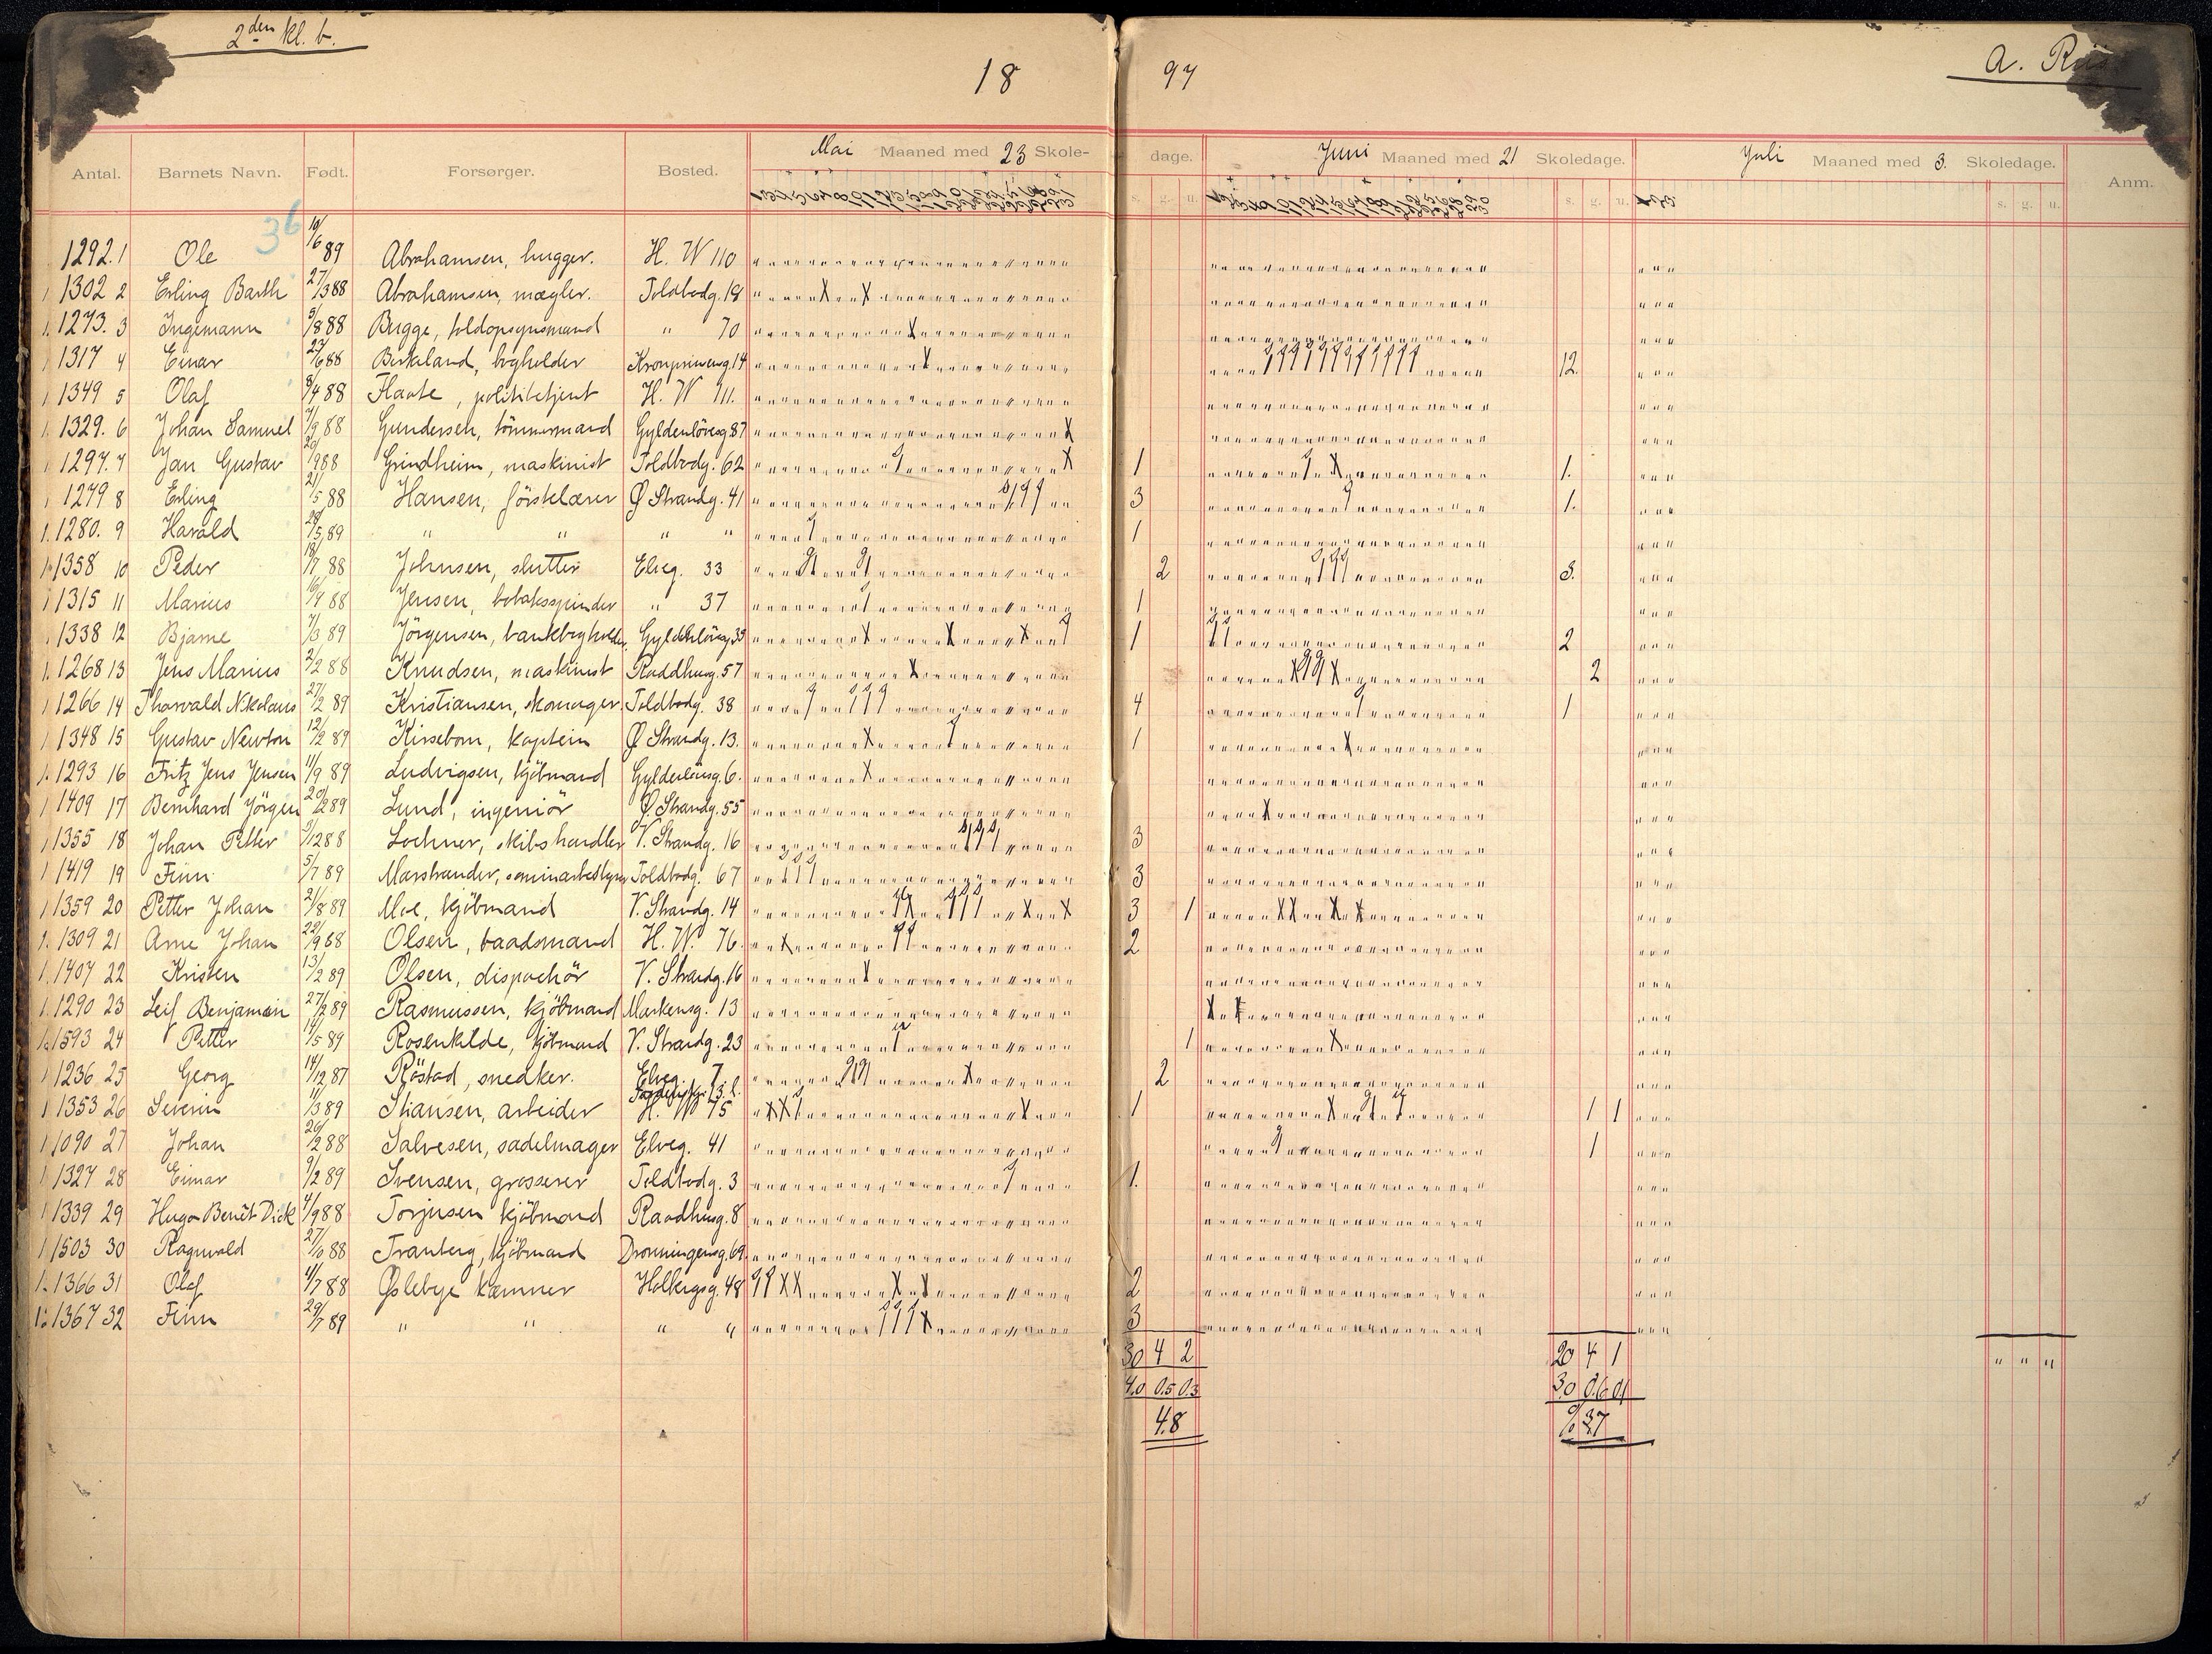 2den kl. b.
18 97
A. Riis
Antal. Barnets Navn. Født. Forsørger. Bosted. Mai Maaned med 23 Skole- dage. Juni Maaned med 21 Skoledage. Juli Maaned med 3. Skoledage. Anm.
s. g. u. s. g. u. s. g. u.
36
1292. 1 Ole 10/6 89 Abrahamsen, hugger. H. W 110
1302 2 Erling Barth 27/3 88 Abrahamsen, mægler. Toldbodg. 18
1273. 3 Ingemann 5/8 88 Bugge, toldopsynsmand " 70
1317 4 Einar 23/6 88 Birkeland, bogholder Kronprinsensg. 14 12.
1349 5 Olaf 8/4 88 Flaate, politibetjent H. W 111.
1329. 6 Johan Samuel 7/9 88 Gundersen, tömmermand Gyldenlövesg. 87
1297. 7 Jan Gustav 20/9 88 Grindheim, maskinist Toldbodg. 62 1 1.
1279 8 Erling 21/5 88 Hansen, förstelærer Ø Strandg. 41 3 1.
1280. 9 Harald 28/5 89 " " " " 1
1358 10 Peder 18/7 88 Johnsen, slutter Elveg. 33 2 3.
1315 11 Marius 16/9 88 Jensen, tobaksspinder " 37 1
1338 12 Bjarne 7/3 89 Jörgensen, bankbogholder, Gyldenlövesg. 35 1 2
1268 13 Jens Marius 2/2 88 Knudsen, maskinist Raadhusg. 57 2
1266 14 Thorvald Nikolaus 27/2 89 Kristiansen, skomager. Toldbodg. 38 4 1
1348 15 Gustav Newton 12/2 89 Kirsebom, kaptein Ø Strandg. 13. 1
1293 16 Fritz Jens Jensen 11/9 89 Ludvigsen, kjöbmand Gyldenlövesg. 6.
1409 17 Bernhard Jörgen 20/2 89 Lund, ingeniör Ø. Strandg. 55
1355 18 Johan Petter 3/12 88 Lochner, skibshandler V. Strandg. 16 3
1419 19 Finn 5/7 89 Marstrander, seminarbestyrer Toldbodg. 67 3
1359 20 Petter Johan 21/8 89 Moe, kjöbmand V. Strandg. 14 3 1
1309 21 Arne Johan 22/9 68 Olsen, baadsmand H. W. 76. 2
1407 22 Kristen 13/2 89 Olsen, dispachör V. Strandg. 16
1290 23 Leif Benjamin 27/2 89 Rasmussen, kjöbmand Markensg. 13
1593 24 Petter 14/5 89 Rosenkilde, kjöbmand V. Strandg. 23 1
1236 25 Georg 14/12 87 Röstad, snedker. Elveg. 7 2
1353 26 Severin 11/3 89 Stiansen, arbeider H. W 75 1 1 1
1090 27 Johan 26/2 88 Salvesen, sadelmager Elveg. 41 1
1327 28 Einar 9/2 89 Svensen, grosserer Toldbodg. 3 1.
1339 29 Hugo Benét Dick 4/9 88 Torjusen kjöbmand Raadhusg. 8
1503 30 Ragnvald 27/10 88 Tranberg, kjöbmand Dronningensg. 69.
1366 31 Olaf 4/7 88 Øslebye kæmner Holbergsg. 48 2
1367 32 Finn 29/7 89 " " " " 3
30 4 2 20 4 1 " " "
4.0 0.5 0.3 3.0 0.6 0.1
4.8 % 3.7